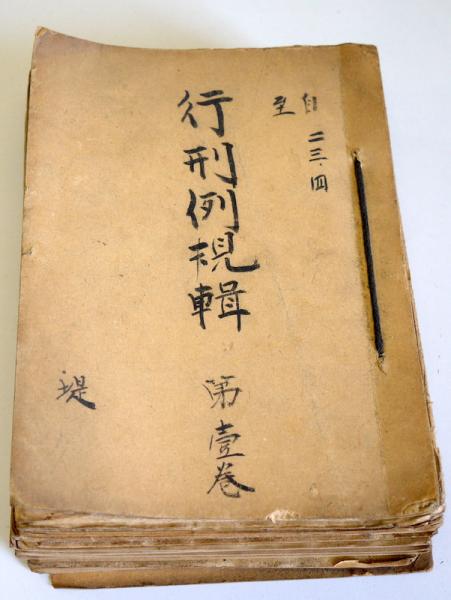 自 二三、四
至
行刑例規輯
第壹卷
堤